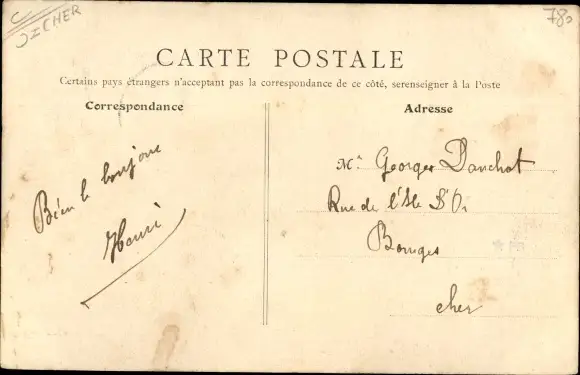 CHER
78
CARTE POSTALE
Certains pays étrangers n'acceptant pas la correspondance de ce côté, serenseigner à la Poste
Correspondance
Adresse
Bien le bonjour
Henri
Mr Georges Danchot
Rue de l'Isle D'Or
Bourges
cher